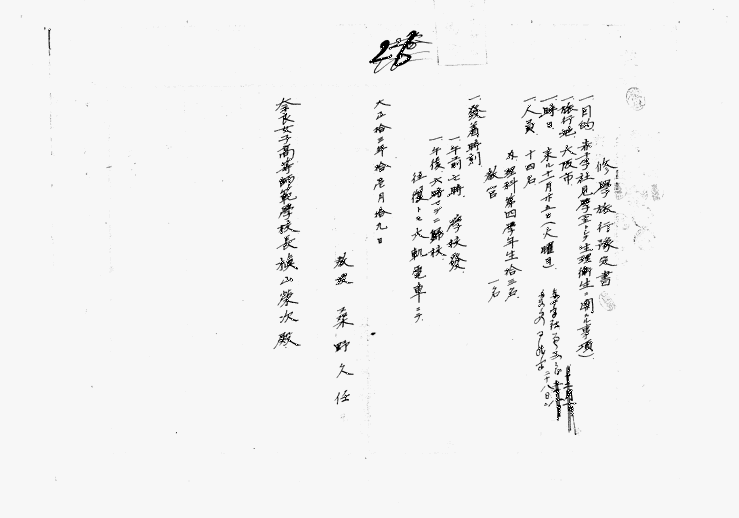 修學旅行豫定書
一、目的、赤十字社見學(主トシテ生理衛生ニ関スル事項)
一、旅行地、大阪市
一、時日、来ル十一月廿五日(火曜日)
一、人員 十四名
本理科第四學年生拾三名
教官 一名
一、發着時刻
一、午前七時、學校發
一、午後六時マデニ歸校
往復トモ大軌電車ニテ
大正拾三年拾壱月拾九日
教授 桑野久任
奈良女子高等師範學校長槇山榮次殿